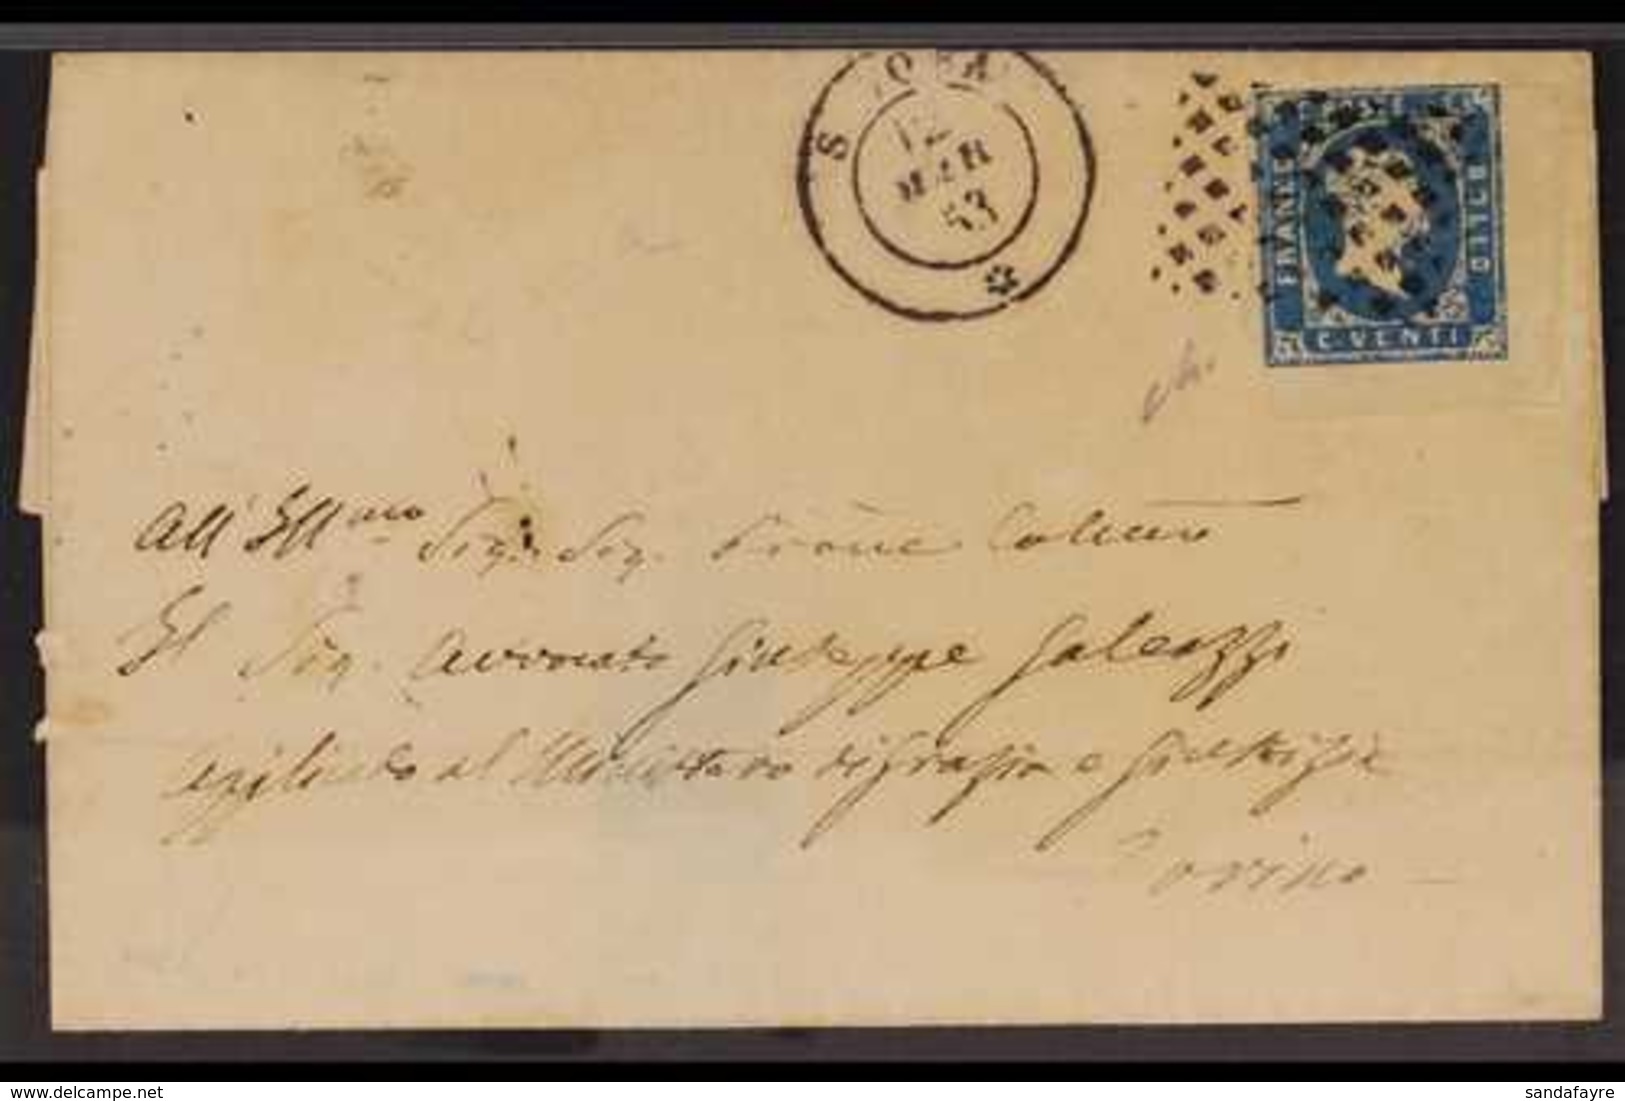 12
MAR
53
FRANCO
BOLLO
C. VENTI
All' Ill.mo Sig. Sig.
Il Sig. Avvocato Giuseppe Galeazzi
applicato al Ministero di Grazia e Giustizia
Torino
www.delcampe.net
sandafayre